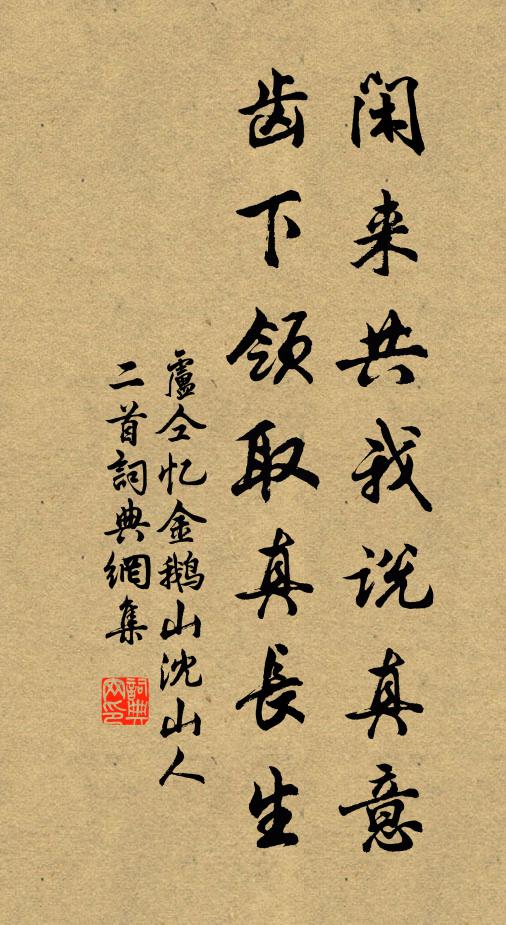 闲来共我说真意
齿下领取真長生
盧仝忆金鹅山沈山人
二首詞典網集
詞典網印